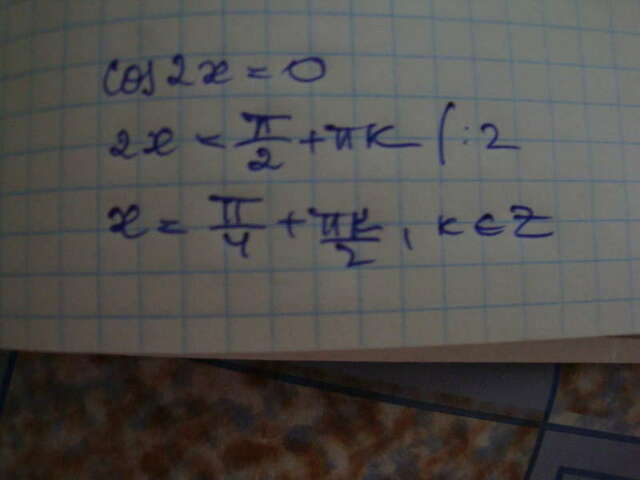 cos2x = 0
2x = π/2 + πk | : 2
x = π/4 + πk/2, k ∈ Z